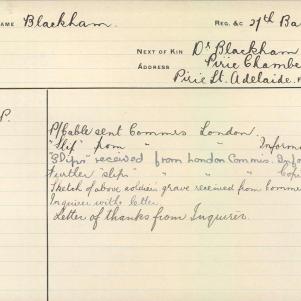 NAME Blackham. REG. &C 27th Ba
NEXT OF KIN Dr Blackham
ADDRESS Pirie Chambe
Pirie St. Adelaide.
P.
P/Cable sent Commrs London.
"Slip" from " " Informa
"3 Slips" received from London Commis. Info
Further "slips" " " " Copi
Sketch of above soldiers grave received from Comm
Inquirer with letter
Letter of thanks from Inquirer.